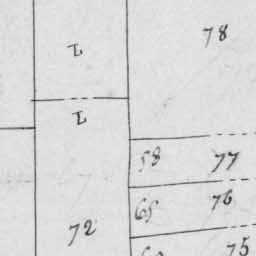 78
L
L
58 77
65 76
72
75